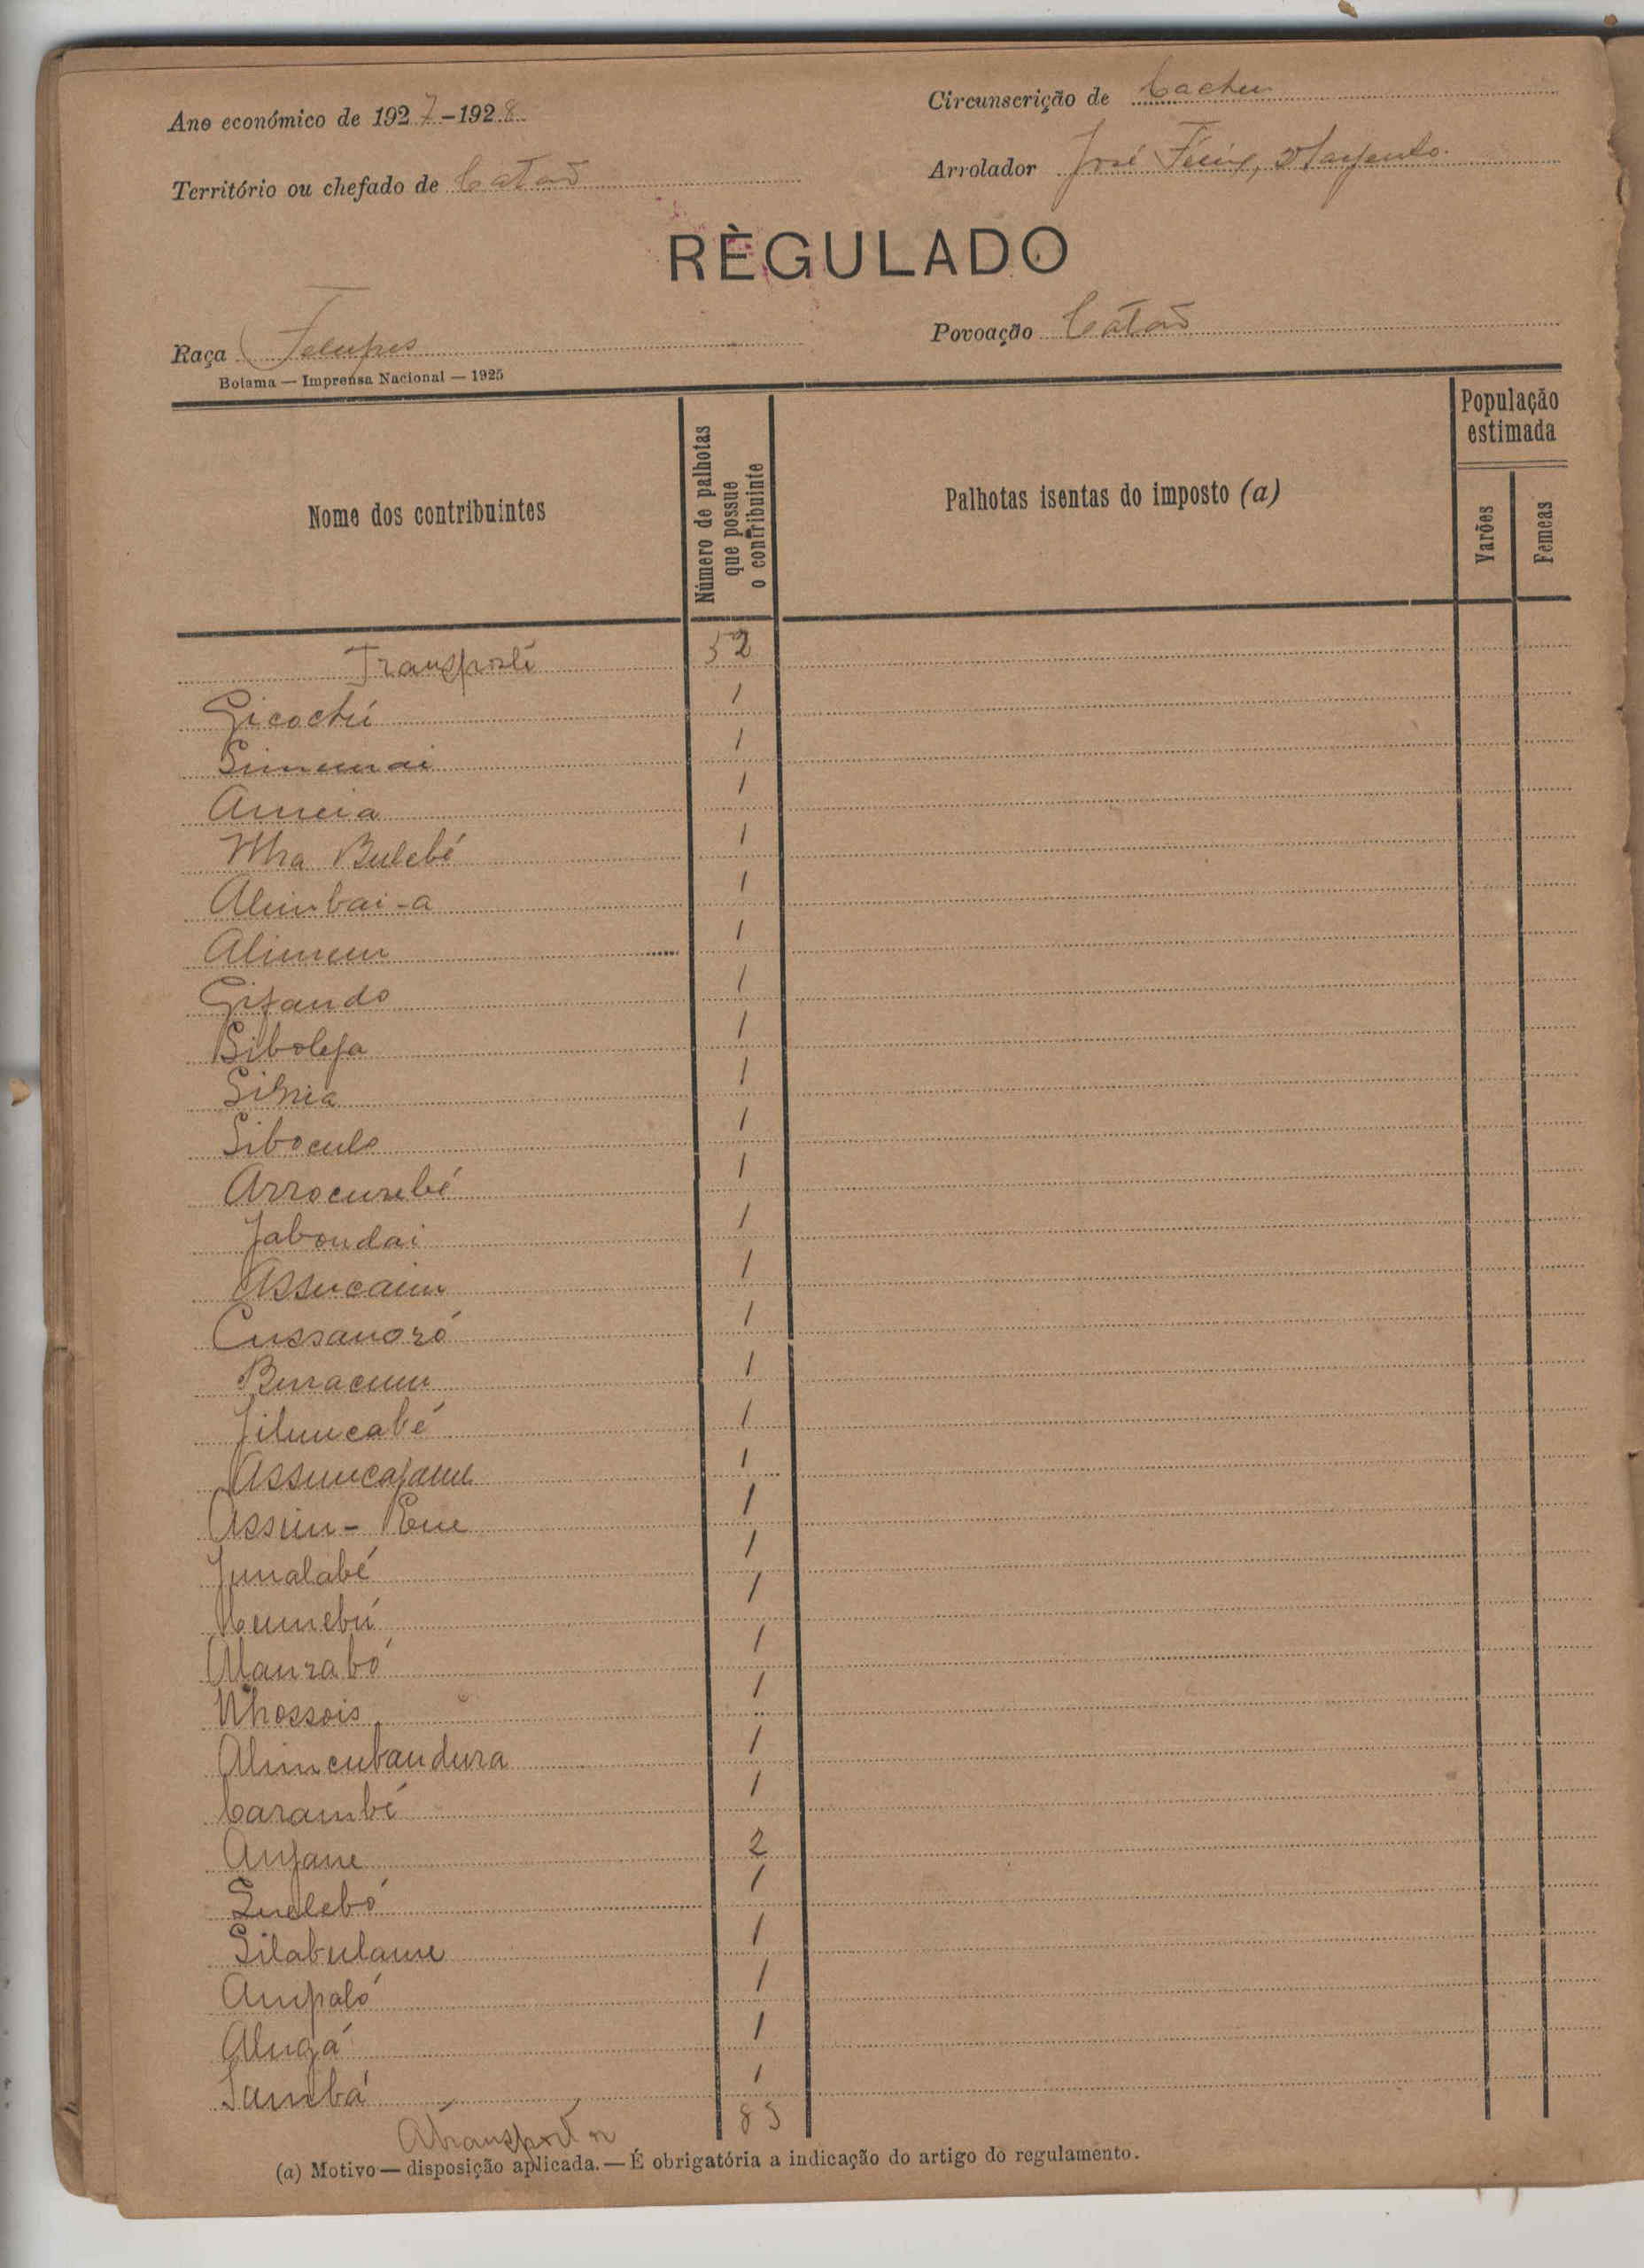 Ano económico de 1927-1928
Circunscrição de Cacheu
Território ou chefado de Catão
Arrolador José Félix, 2º Sargento.
RÈGULADO
Raça Felupes
Povoação Catão
Bolama — Imprensa Nacional — 1925
Nome dos contribuintes
Número de palhotas que possue o contribuinte
Palhotas isentas do imposto (a)
População estimada
Varões
Femeas
Transporte 52
Gicochú 1
1
Ameia 1
Nha Bulebé 1
Alimbai-a 1
Alimum 1
Gifando 1
Bibolefa 1
Sihia 1
Siboculo 1
Arrocunebé 1
Jabondai 1
Assucaim 1
Cussanoró 1
Buracum 1
Jiluncabé 1
1
1
Junalabé 1
1
1
Nhossois 1
Alimcubandura 1
Carambé 1
Anjane 2
Quelebó 1
Silabulame 1
Ampaló 1
Alugá 1
Sambá 1
A transportar 83
(a) Motivo — disposição aplicada. — É obrigatória a indicação do artigo do regulamento.